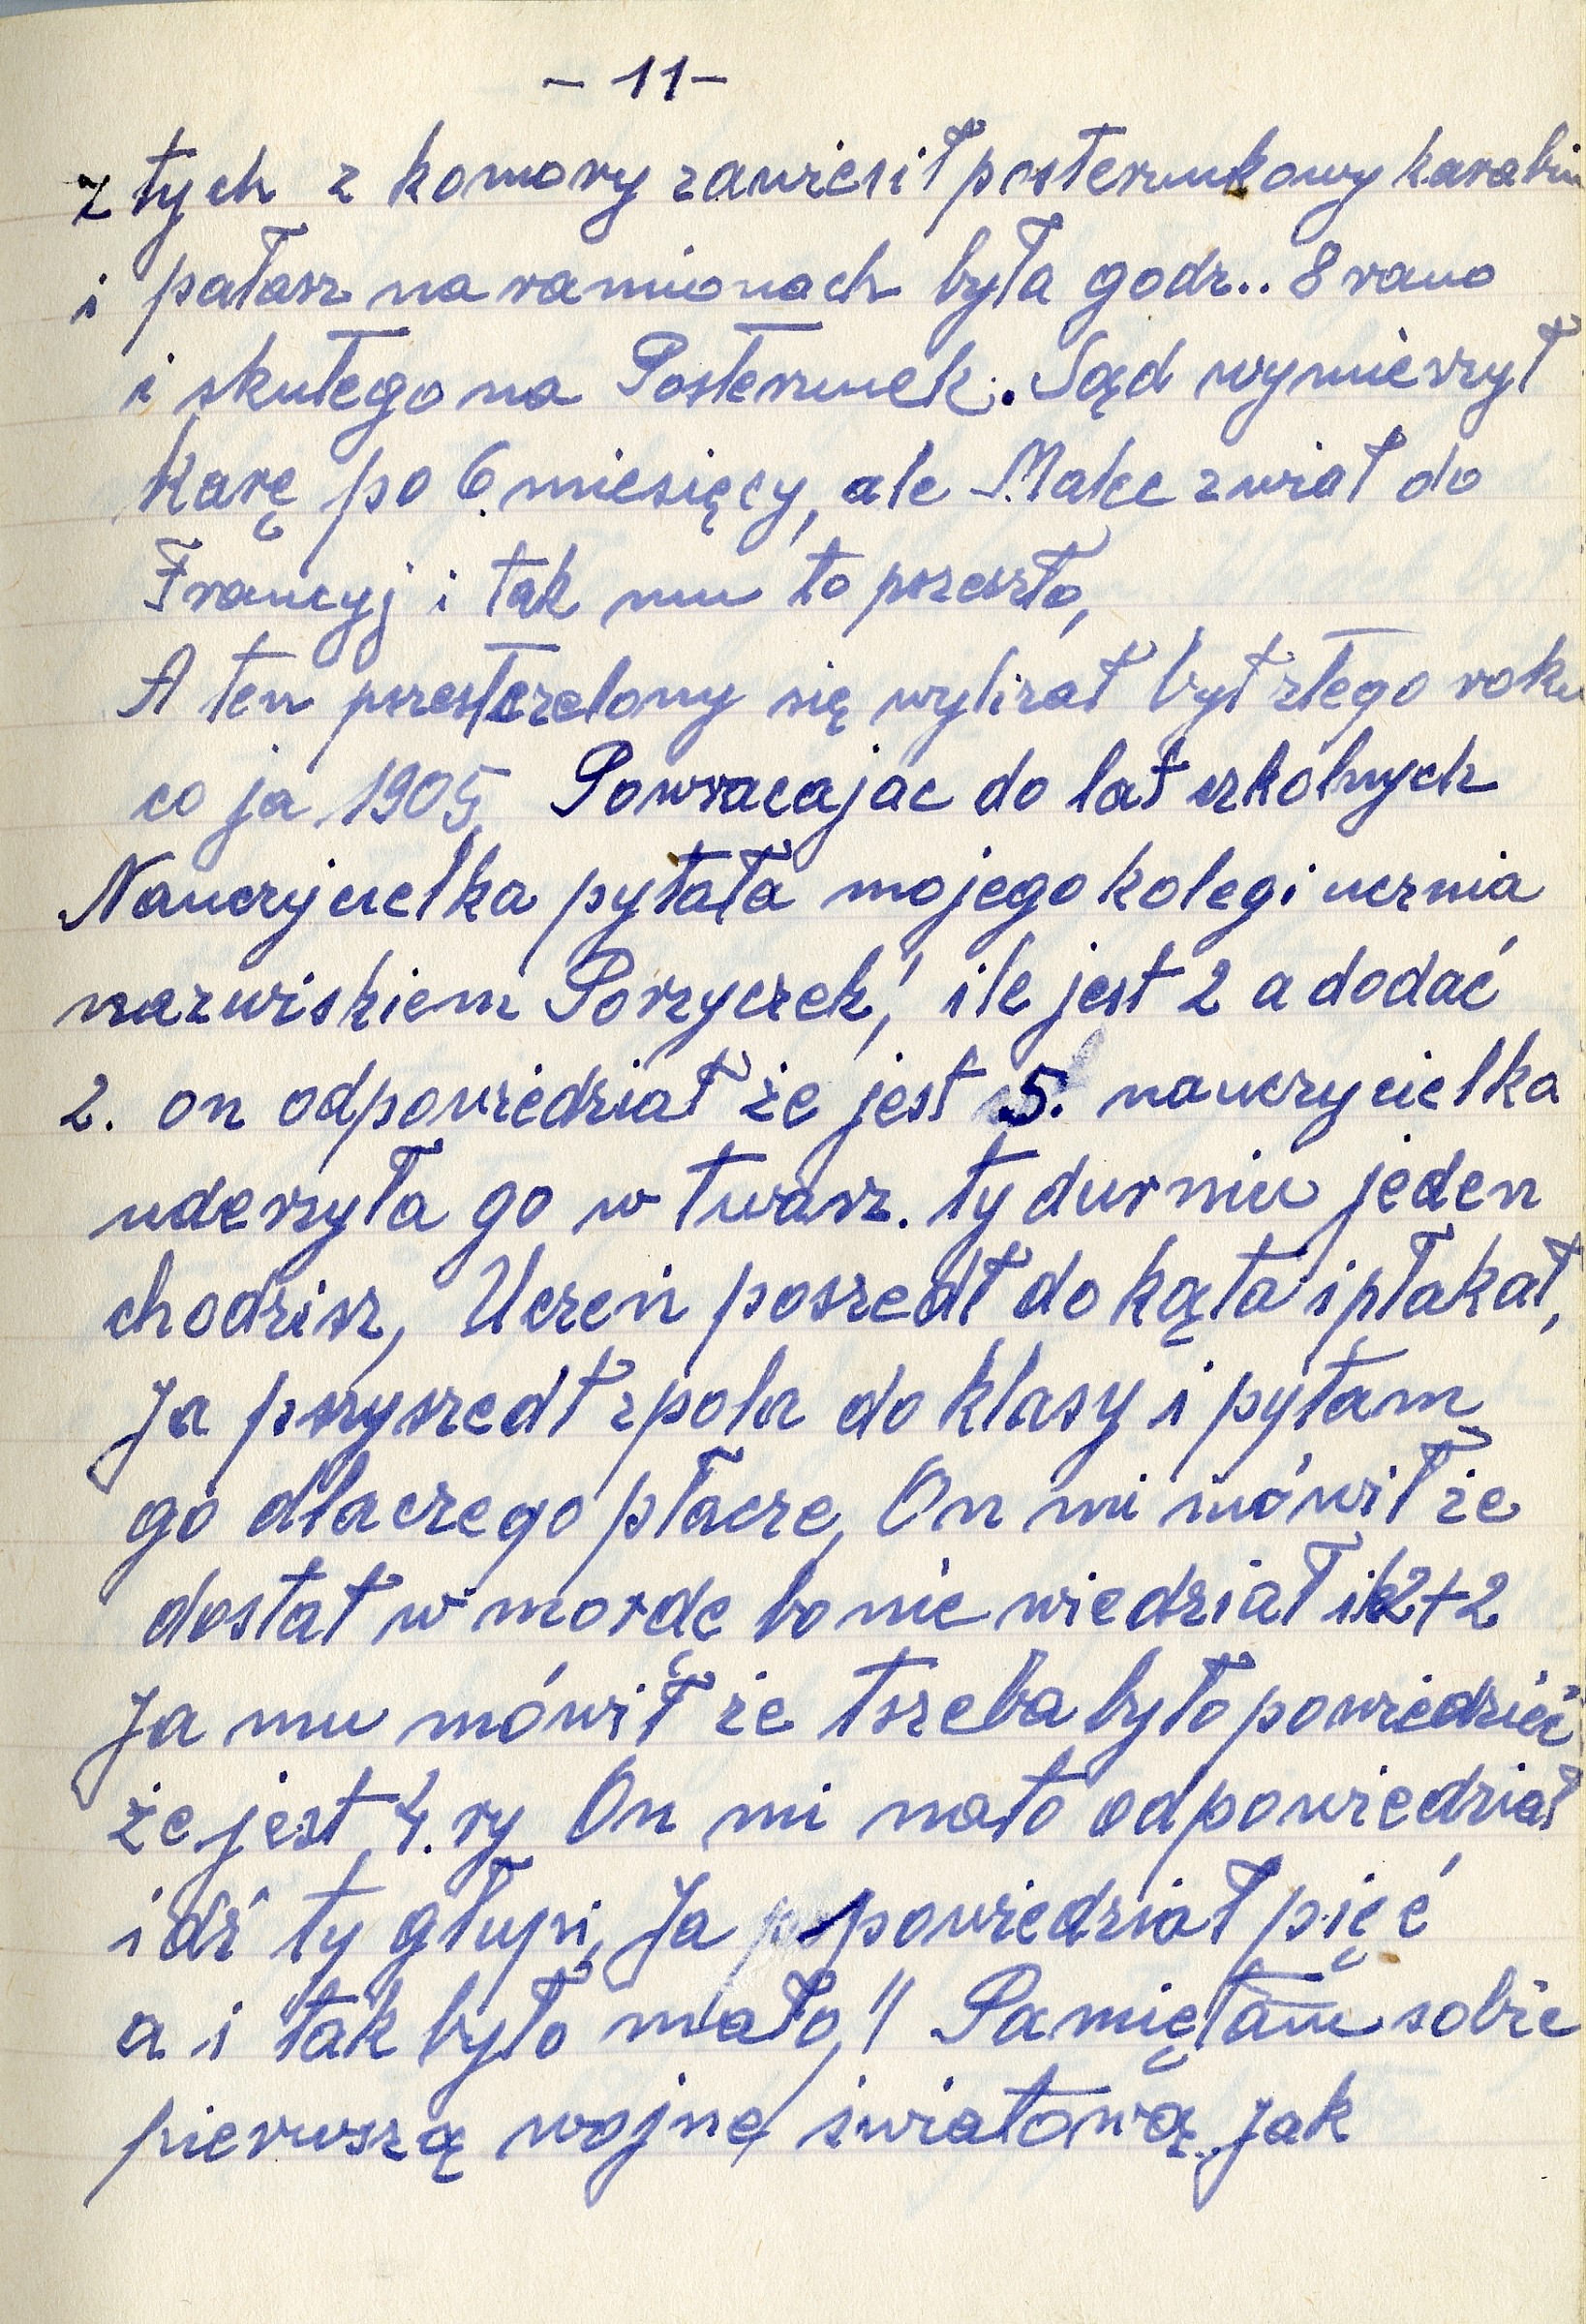 - 11 -
z tych z komory zawiesił posterunkowy karabin
i pałasz na ramionach była godz.. 8 rano
i skutego na Posterunek. Sąd wymierzył
karę po 6 miesięcy, ale Malec zwiał do
Francyj i tak mu to przeszło,
A ten przestrzelony się wylizał był złego roku
co ja 1905 Powracajac do lat szkolnych
Nauczycielka pytała mojego kolegi ucznia
nazwiskiem Porzyczek, ile jest 2 a dodać
2. on odpowiedział że jest 5. nauczycielka
uderzyła go w twarz. ty durniu jeden
chodzisz, Uczeń poszedł do kąta i płakał,
Ja przyszedł z pola do klasy i pytam
go dlaczego płacze, On mi mówił że
dostał w mordę bo nie wiedział ile 2+2
Ja mu mówił że trzeba było powiedzieć
że jest 4. ry On mi nato odpowiedział
idź ty głupi, Ja powiedział pięć
a i tak było mało," Pamiętam sobie
pierwszą wojnę światową. Jak